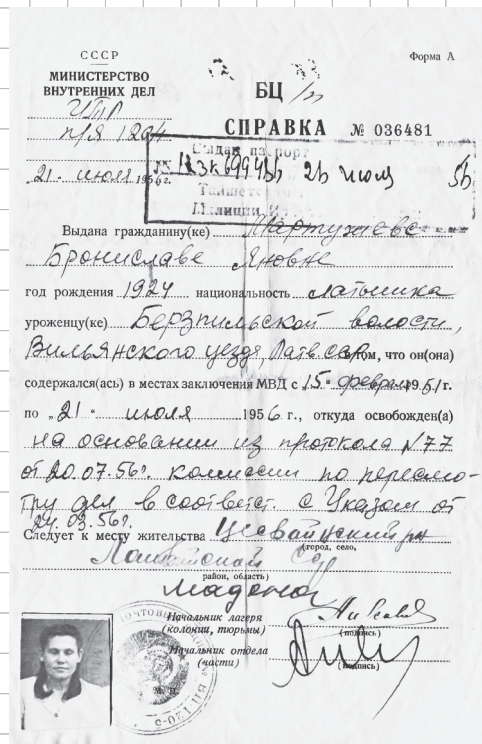 СССР
Форма А
МИНИСТЕРСТВО
ВНУТРЕННИХ ДЕЛ
БЦ
п/я 1204
СПРАВКА № 036481
Выдан паспорт
"21" июля 1956 г.
26 июля 56
Тайшетским
Милиции
Выдана гражданину(ке) Мартужеве
Брониславе Яновне
год рождения 1924 национальность латышка
уроженцу(ке) Берзпильской волости,
Вильянского уезда, Латв. сср в том, что он(она)
содержался(ась) в местах заключения МВД с "15" февраля 1951 г.
по "21" июля 1956 г., откуда освобожден(а)
на основании из протокола N 77
от 20.07.56г. комиссии по пересмо-
тру дел в соответст. с Указом от
24.03.56г.
Следует к месту жительства Цесвайнский рн
(город, село,
Латвийской ССР
район, область)
Мадона
Начальник лагеря
(колонии, тюрьмы)
(подпись)
Начальник отдела
(части)
(подпись)
М. П.